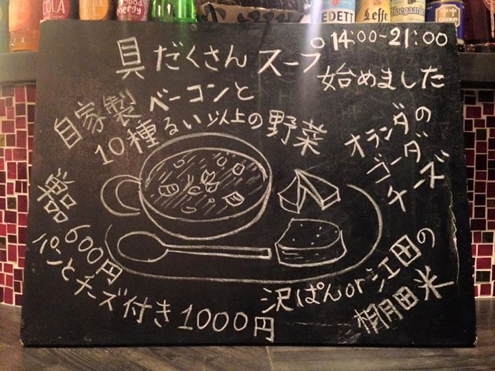 具だくさん スープ
14:00~21:00
始めました
自家製 ベーコンと
10種るい以上の野菜
オランダの
ゴーダ
チーズ
単品
600円
パンとチーズ付き1000円
沢ぱんor江田の
棚田米